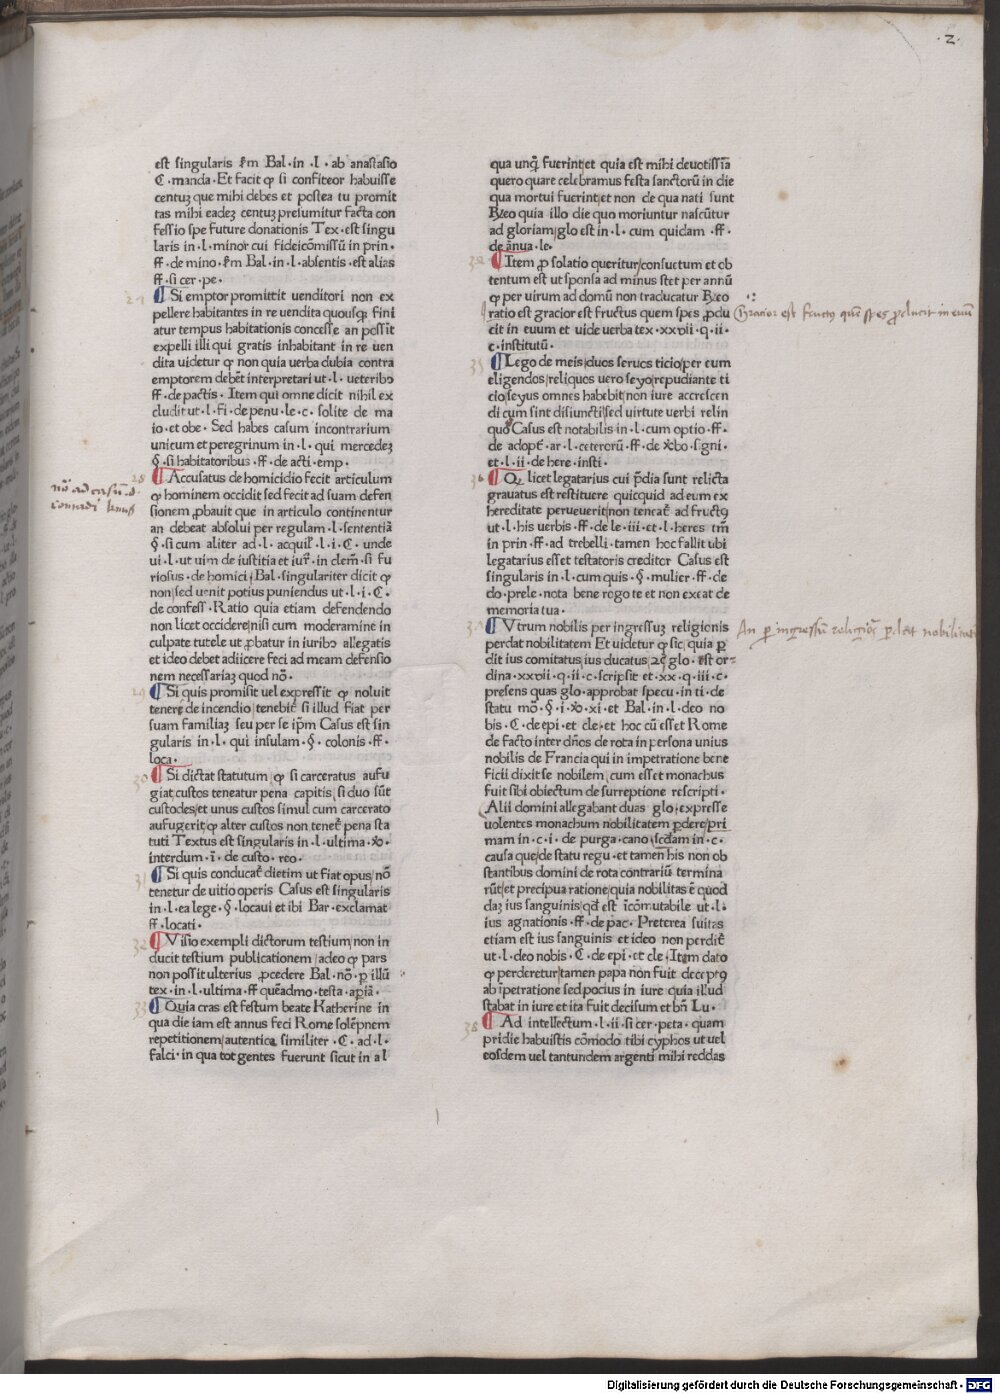 ·2·
est singularis s̄m Bal·in ·l· ab anastasio
C·manda·Et facit ꝙ si confiteor habuisse
centuꝫ que mihi debes et postea tu promit
tas mihi eadeꝫ centuꝫ presumitur facta con
fessio spe future donationis Tex·est singu
laris in·l·minor cui fideicōmissū in prin·
ff·de mino·s̄m Bal·in·l·absentis·est alias
ff·si cer·pe·
Si emptor promittit uenditori non ex
pellere habitantes in re uendita quousqꝫ fini
atur tempus habitationis concesse an possit
expelli illi qui gratis inhabitant in re uen
dita uidetur ꝙ non quia uerba dubia contra
emptorem debēt interpretari ut·l·ueteribꝰ
ff·de pactis· Item qui omne dicit nihil ex
cludit ut·l·fi·de penu·le·c·solite de ma
io·et obe· Sed habes casum incontrarium
unicum et peregrinum in·l·qui mercedeꝫ
§·si habitatoribus·ff·de acti·emp·
28
Accusatus de homicidio fecit articulum
ꝙ hominem occidit sed fecit ad suam defen
sionem ꝓbauit que in articulo continentur
an debeat absolui per regulam·l·sententiā
§·si cum aliter ad·l·acquil·l·i·C·unde
ui·l·ut uim de iustitia et iur̄·in clem̄·si fu
riosus·de homici·Bal·singulariter dicit ꝙ
non sed uenit potius puniendus ut·l·i·C·
de confess·Ratio quia etiam defendendo
non licet occidere nisi cum moderamine in
culpate tutele ut ꝓbatur in iuribꝰ allegatis
et ideo debet adiicere feci ad meam defensio
nem necessariaꝫ quod nō·
Si quis promisit uel expressit ꝙ noluit
tenere de incendio tenebit̄ si illud fiat per
suam familiaꝫ seu per se ip̄m Casus est sin
gularis in·l·qui insulam·§·colonis·ff·
loca·
30
Si dictat statutum ꝙ si carceratus aufu
giat custos teneatur pena capitis si duo sūt
custodes et unus custos simul cum carcerato
aufugerit ꝙ alter custos non tenet̄ pena sta
tuti Textus est singularis in·l·ultima·ꝟo·
interdum·ī·de custo·reo·
31
Si quis conducat̄ dietim ut fiat opus nō
tenetur de uitio operis Casus est singularis
in·l·ea lege·§·locaui et ibi Bar·exclamat
ff·locati·
32
Visio exempli dictorum testium non in
ducit testium publicationem adeo ꝙ pars
non possit ulterius ꝓcedere Bal·nō·ꝑ illū
tex·in·l·ultima·ff quēadmo·testa·apiā·
33
Quia cras est festum beate Katherine in
qua die iam est annus feci Rome solēpnem
repetitionem autentica similiter·C·ad·l·
falci·in qua tot gentes fuerunt sicut in al
qua unqꝫ fuerint et quia est mihi deuotissīa
quero quare celebramus festa sanctorū in die
qua mortui fuerint et non de qua nati sunt
Rꝫeo quia illo die quo moriuntur nascūtur
ad gloriam glo est in·l·cum quidam·ff·
de ānua·le·
Item ꝓ solatio queritur consuetum et ob
tentum est ut sponsa ad minus stet per annū
ꝙ per uirum ad domū non traducatur Rꝫeo
ratio est gracior est fructus quem spes ꝓdu
cit in euum et uide uerba tex·xxvii·q·ii·
c·institutū·
35
Lego de meis duos seruos ticio per eum
eligendos reliquos uero seyo repudiante ti
cio seyus omnes habebit non iure accrescen
di cum sint disiuncti sed uirtute uerbi relin
quo Casus est notabilis in·l·cum optio·ff·
de adopt̄·ar·l·ceterorū·ff·de ꝟbo·signi·
et·l·ii·de here·insti·
36
Qꝫ licet legatarius cui p̄dia sunt relicta
grauatus est restituere quicquid ad eum ex
hereditate peruenerit non teneat̄ ad fructꝰ
ut·l·his uerbis·ff·de le·iii·et·l·heres tm̄
in prin·ff·ad trebelli·tamen hoc fallit ubi
legatarius esset testatoris creditor Casus est
singularis in·l·cum quis·§·mulier·ff·de
do·prele·nota bene rogo te et non exeat de
memoria tua·
Vtrum nobilis per ingressuꝫ religionis
perdat nobilitatem Et uidetur ꝙ sic quia ꝑ
dit ius comitatus ius ducatus ⁊c̄ glo·est or-
dina·xxvii·q·ii·c·scripsit et·xx·q·iii·c·
presens quas glo·approbat specu·in ti·de
statu mō·§·i·ꝟo·xi·et Bal·in·l·deo no
bis·C·de epi·et cle·et hoc cū esset Rome
de facto inter dn̄os de rota in persona unius
nobilis de Francia qui in impetratione bene
ficii dixit se nobilem cum esset monachus
fuit sibi obiectum de surreptione rescripti·
Alii domini allegabant duas glo·expresse
uolentes monachum nobilitatem ꝑdere pri
mam in·c·i·de purga·cano scd̄am in·c·
causa que de statu regu·et tamen his non ob
stantibus domini de rota contrariū termina
rūt et precipua ratione quia nobilitas ē quod
daꝫ ius sanguinis qd̄ est īcōmutabile ut·l·
ius agnationis·ff·de pac·Preterea suitas
etiam est ius sanguinis et ideo non perdit̄
ut·l·deo nobis·C·de epi·et cle·Item dato
ꝙ perderetur tamen papa non fuit deceptꝰ
ab īpetratione sed pocius in iure quia illud
stabat in iure et ita fuit decisum et bn̄ Lu·
38
Ad intellectum·l·ii·si cer·peta·quam
pridie habuistis cōmodo tibi cyphos ut uel
eosdem uel tantundem argenti mihi reddas
Gracior est fructꝰ quē spes ꝓducit in euū
An ꝑ ingressū religiōis ꝑdat nobilitatē
Digitalisierung gefördert durch die Deutsche Forschungsgemeinschaft - DFG